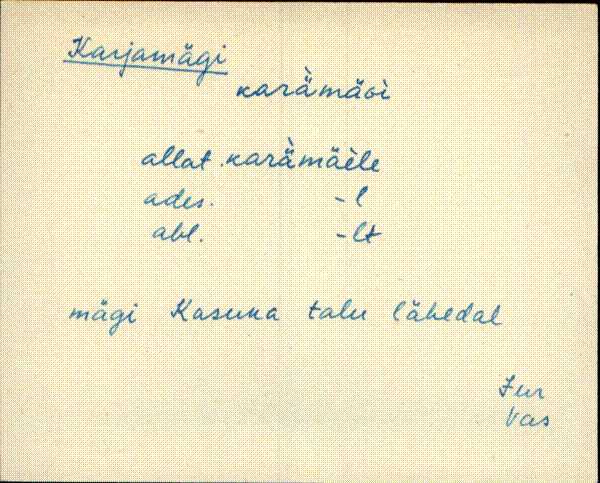 Karjamägi
karàmäɢì
allat. karàmäèle
ades. -l
abl. -lt
mägi Kasuka talu lähedal
Jur
Vas